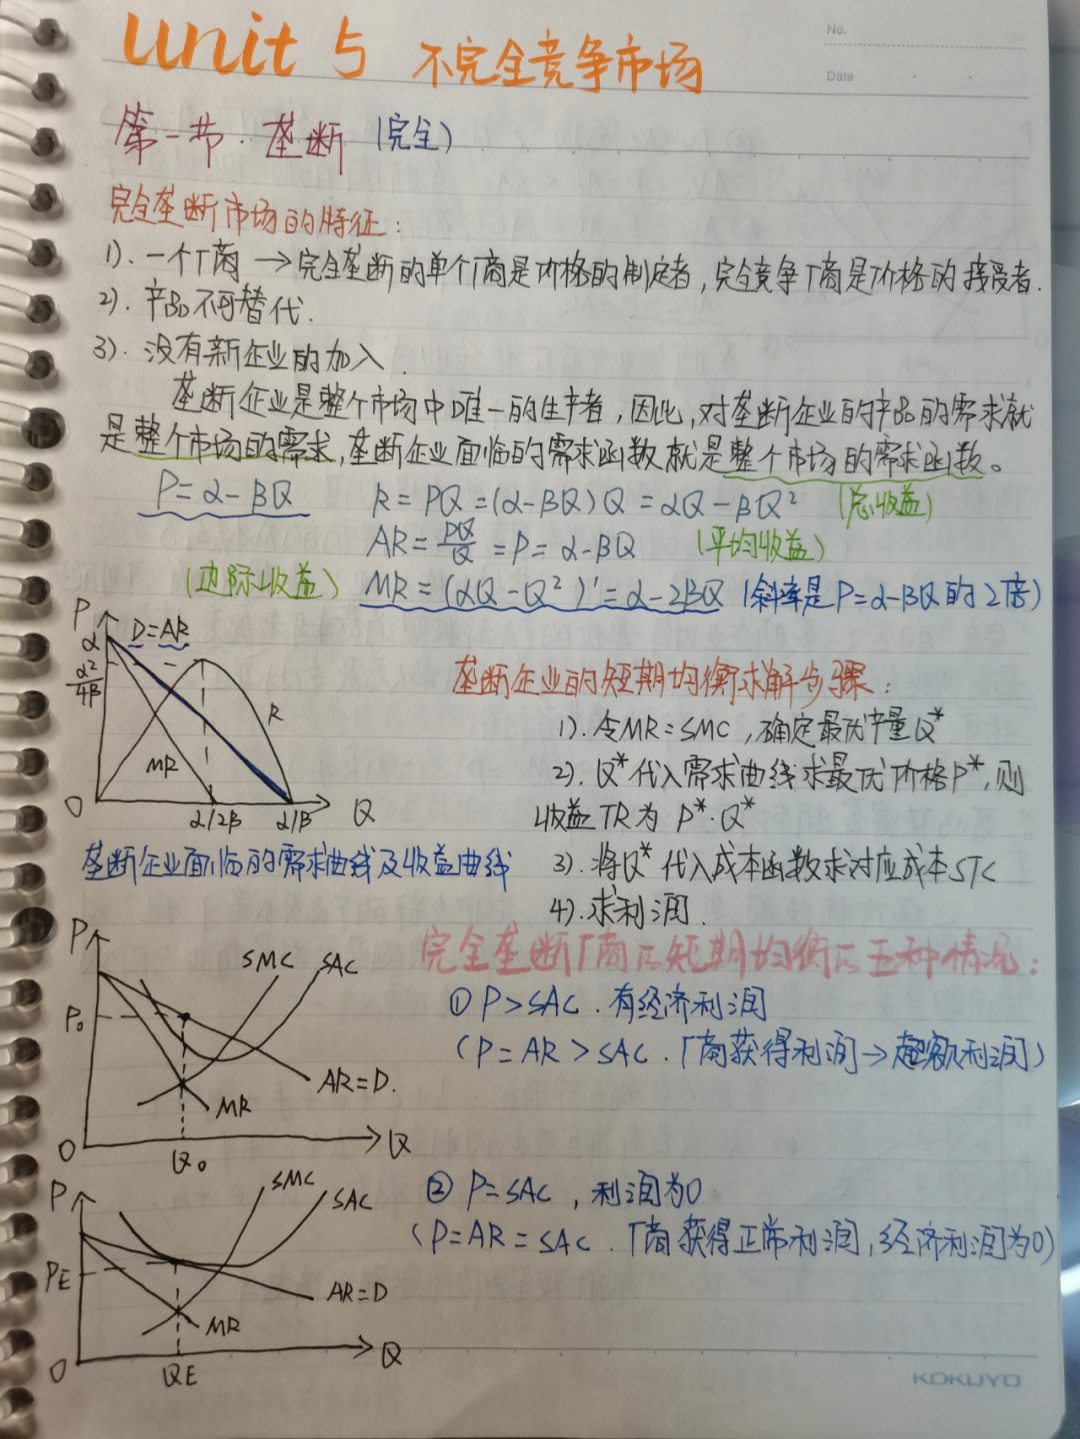 unit 5 不完全竞争市场
No.
Date
第一节·垄断(完全)
完全垄断市场的特征:
1). 一个厂商 → 完全垄断的单个厂商是价格的制定者, 完全竞争厂商是价格的接受者.
2). 产品不可替代.
3). 没有新企业的加入.
垄断企业是整个市场中唯一的生产者, 因此, 对垄断企业的产品的需求就
是整个市场的需求, 垄断企业面临的需求函数就是整个市场的需求函数。
P=α-βQ R=PQ=(α-βQ)Q=αQ-βQ² (总收益)
AR=PQ/Q=P=α-βQ (平均收益)
(边际收益) MR=(αQ-Q²)'=α-2βQ (斜率是P=α-βQ的2倍)
P
α D=AR
α²/4β
R
MR
O α/2β α/β Q
垄断企业面临的需求曲线及收益曲线
垄断企业的短期均衡求解步骤:
1). 令MR=SMC, 确定最优产量Q*
2). Q*代入需求曲线求最优价格P*, 则
收益TR为P*·Q*
3). 将Q*代入成本函数求对应成本STC
4). 求利润.
完全垄断厂商的短期均衡的五种情况:
P
SMC SAC
P₀
AR=D.
MR
O Q₀ Q
① P>SAC. 有经济利润
(P=AR>SAC. 厂商获得利润→超额利润)
P
SMC SAC
PE
AR=D
MR
O QE Q
② P=SAC, 利润为0.
(P=AR=SAC. 厂商获得正常利润, 经济利润为0)
KOKUYO